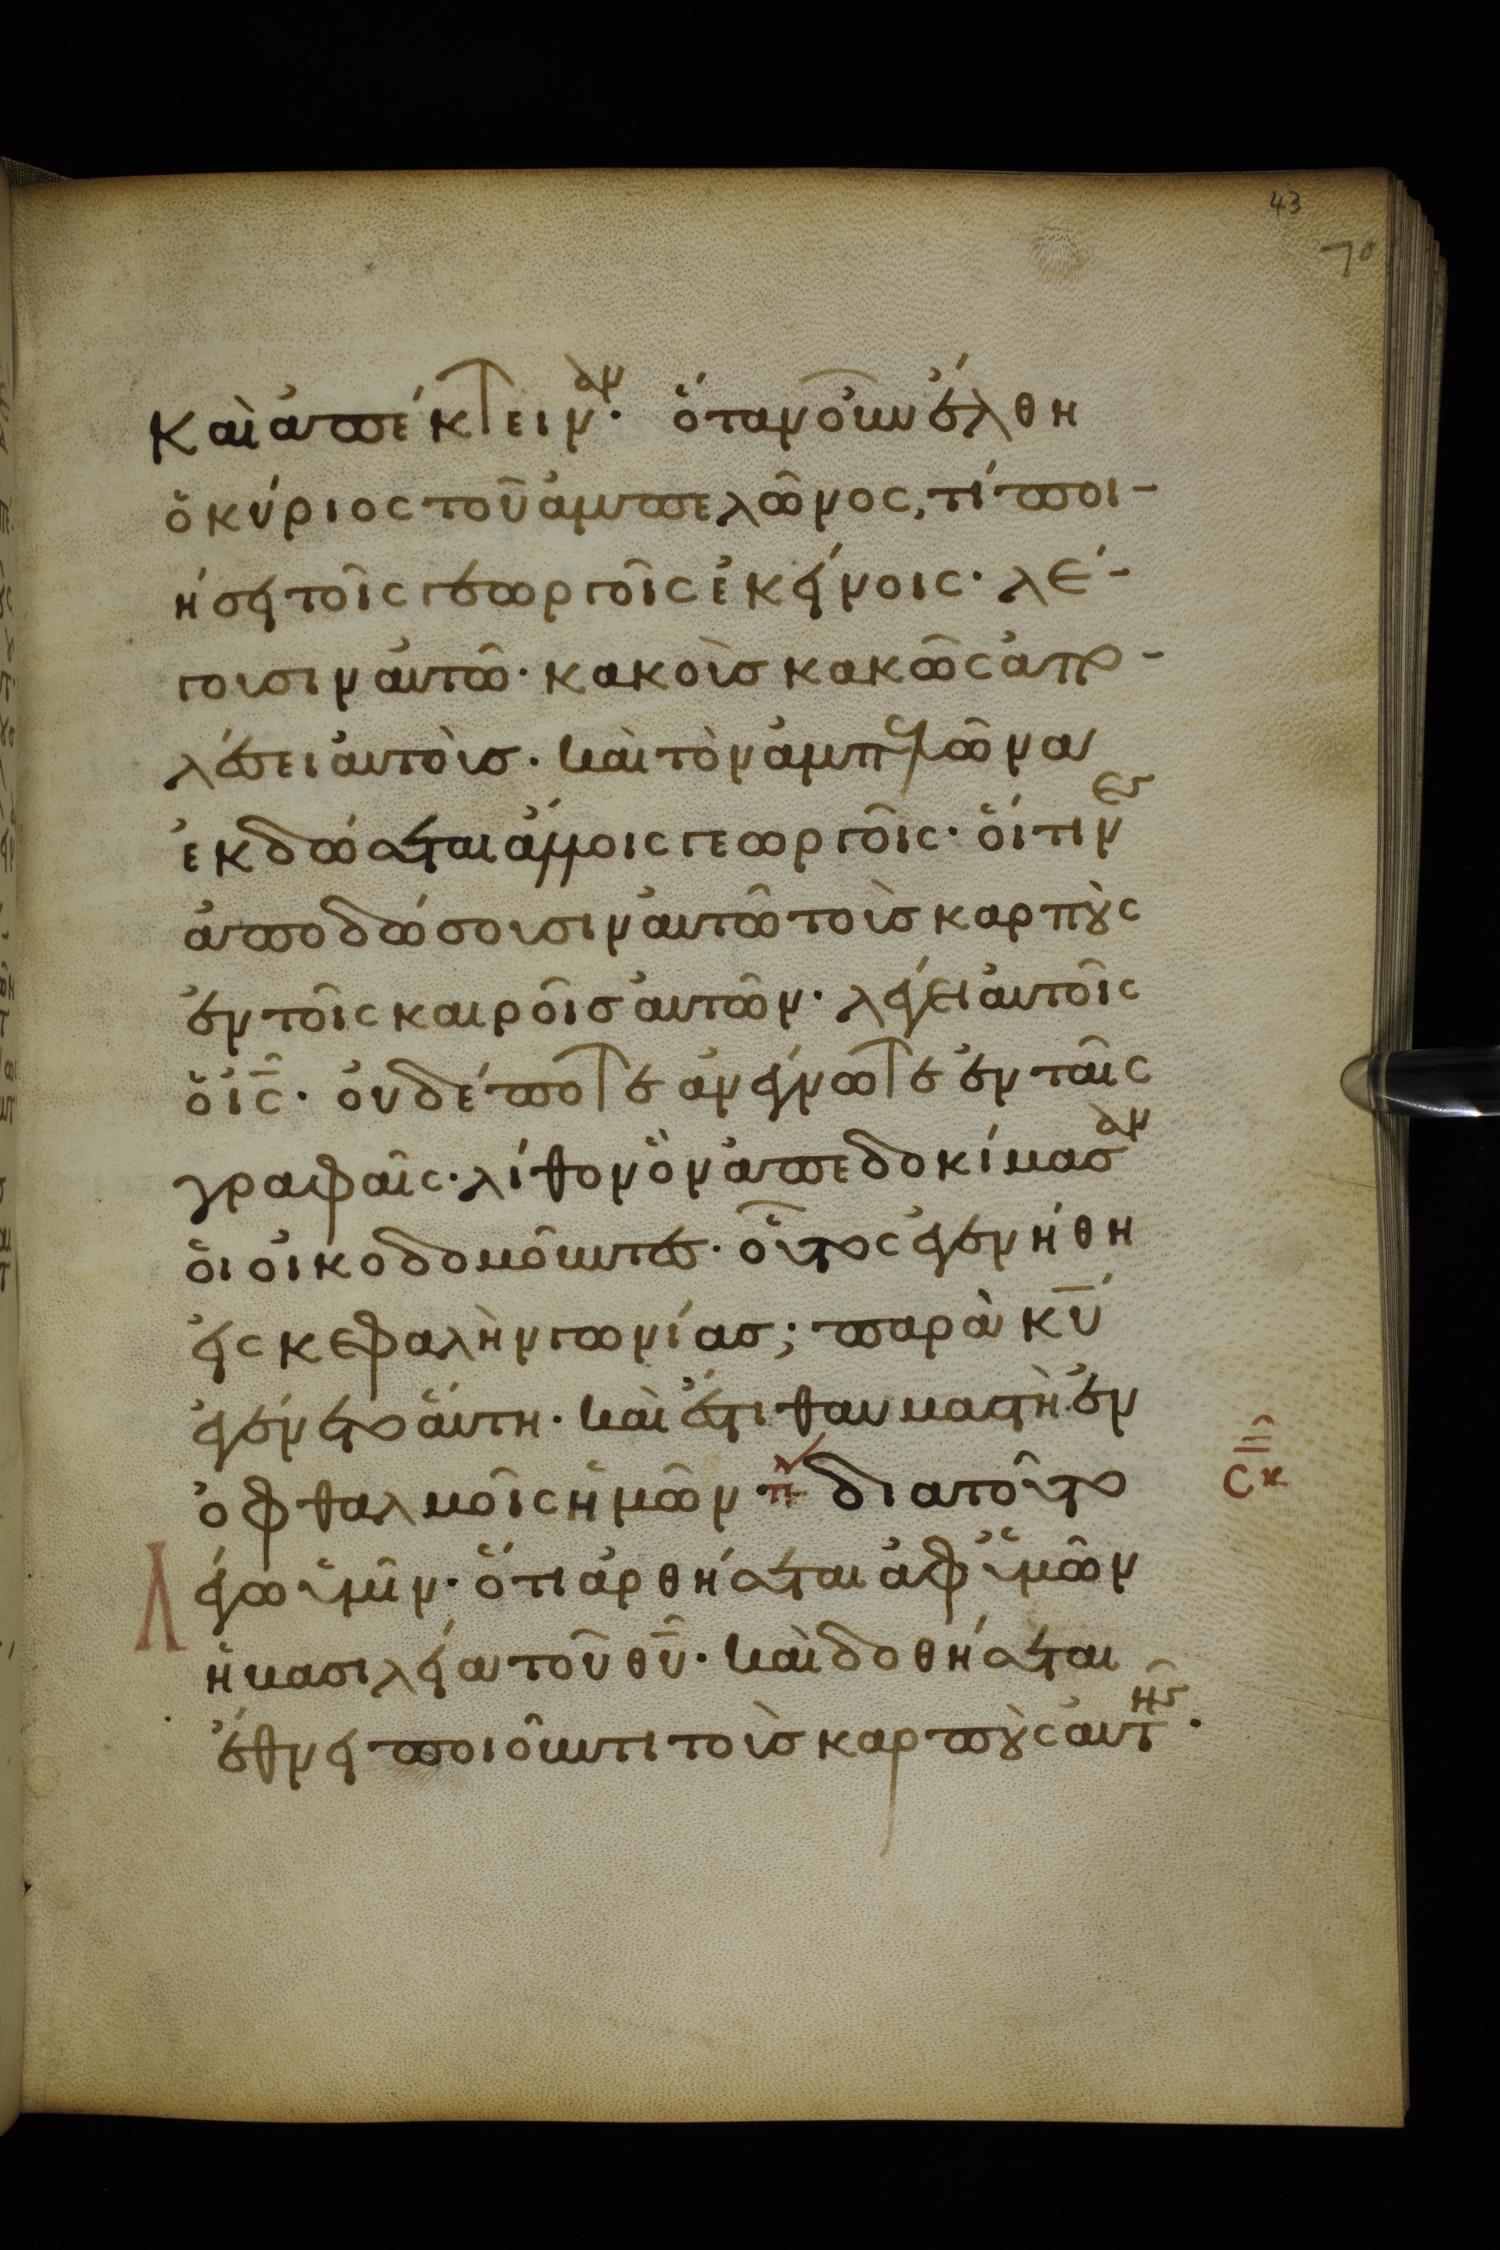 43
70
Καὶ ἀπέκτειναν· ὅταν οὖν ἔλθη
ὁ κύριος τοῦ ἀμπελῶνος, τί ποι-
ήσει τοῖς γεωργοῖς ἐκείνοις· λέ-
γουσιν αὐτῶ· κακοὺς κακῶς ἀπο-
λέσει αὐτοὺς· καὶ τὸν ἀμπελῶνα
ἐκδώσεται ἄλλοις γεωργοῖς· οἵτινες
ἀποδώσουσιν αὐτῶ τοὺς καρποὺς
ἐν τοῖς καιροῖς αὐτῶν· λέγει αὐτοῖς
ὁ ις· οὐδέποτε ἀνέγνωτε ἐν ταῖς
γραφαῖς· λίθον ὃν ἀπεδοκίμασαν
οἱ οἰκοδομοῦντες· οὗτος ἐγενήθη
εἰς κεφαλὴν γωνίας; παρὰ κυ
ἐγένετο αὕτη· καὶ ἔστι θαυμαστὴ ἐν
ὀφθαλμοῖς ἡμῶν· διατοῦτο
λέγω ὑμῖν· ὅτι ἀρθήσεται ἀφ ὑμῶν
ἡ βασιλεία τοῦ θυ· καὶ δοθήσεται
ἔθνει ποιοῦντι τοὺς καρποὺς αὐτῆς·